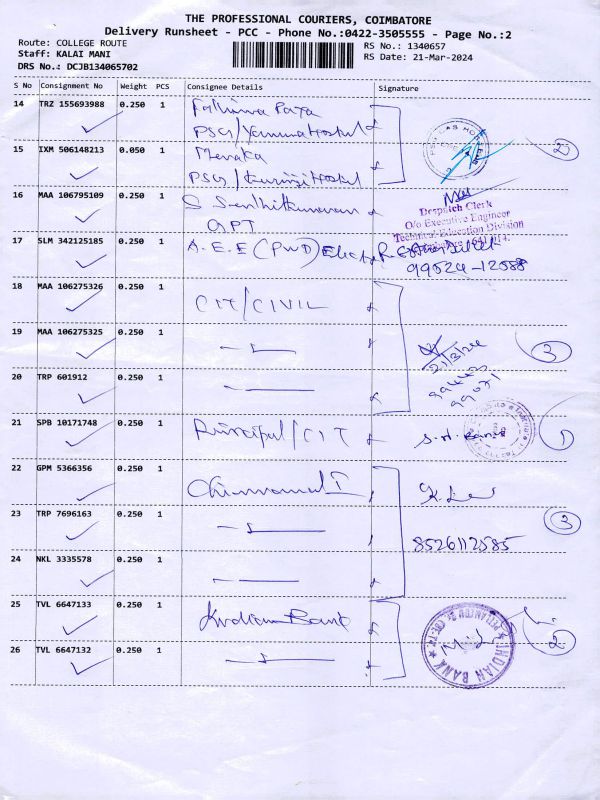 THE PROFESSIONAL COURIERS, COIMBATORE
Delivery Runsheet - PCC - Phone No.:0422-3505555 - Page No.:2
Route: COLLEGE ROUTE
RS No.: 1340657
Staff: KALAI MANI
RS Date: 21-Mar-2024
DRS No.: DCJB134065702
S No Consignment No Weight PCS Consignee Details Signature
14 TRZ 155693988 0.250 1
PSG/Yamuna Hostel
2
15 IXM 506148213 0.050 1 Menaka
PSG/Kurinji Hostel
16 MAA 106795109 0.250 1 S. Senthilkumaran
GPT
Despatch Clerk
O/o Executive Engineer
Technical Education Division
17 SLM 342125185 0.250 1 A.E.E (PWD)
99524-12588
18 MAA 106275326 0.250 1 CIT/CIVIL
19 MAA 106275325 0.250 1
21/3/24
3
20 TRP 601912 0.250 1
21 SPB 10171748 0.250 1 Principal/CIT
1
22 GPM 5366356 0.250 1
23 TRP 7696163 0.250 1
3
8526112585
24 NKL 3335578 0.250 1
25 TVL 6647133 0.250 1 Indian Bank
INDIAN BANK
2
26 TVL 6647132 0.250 1